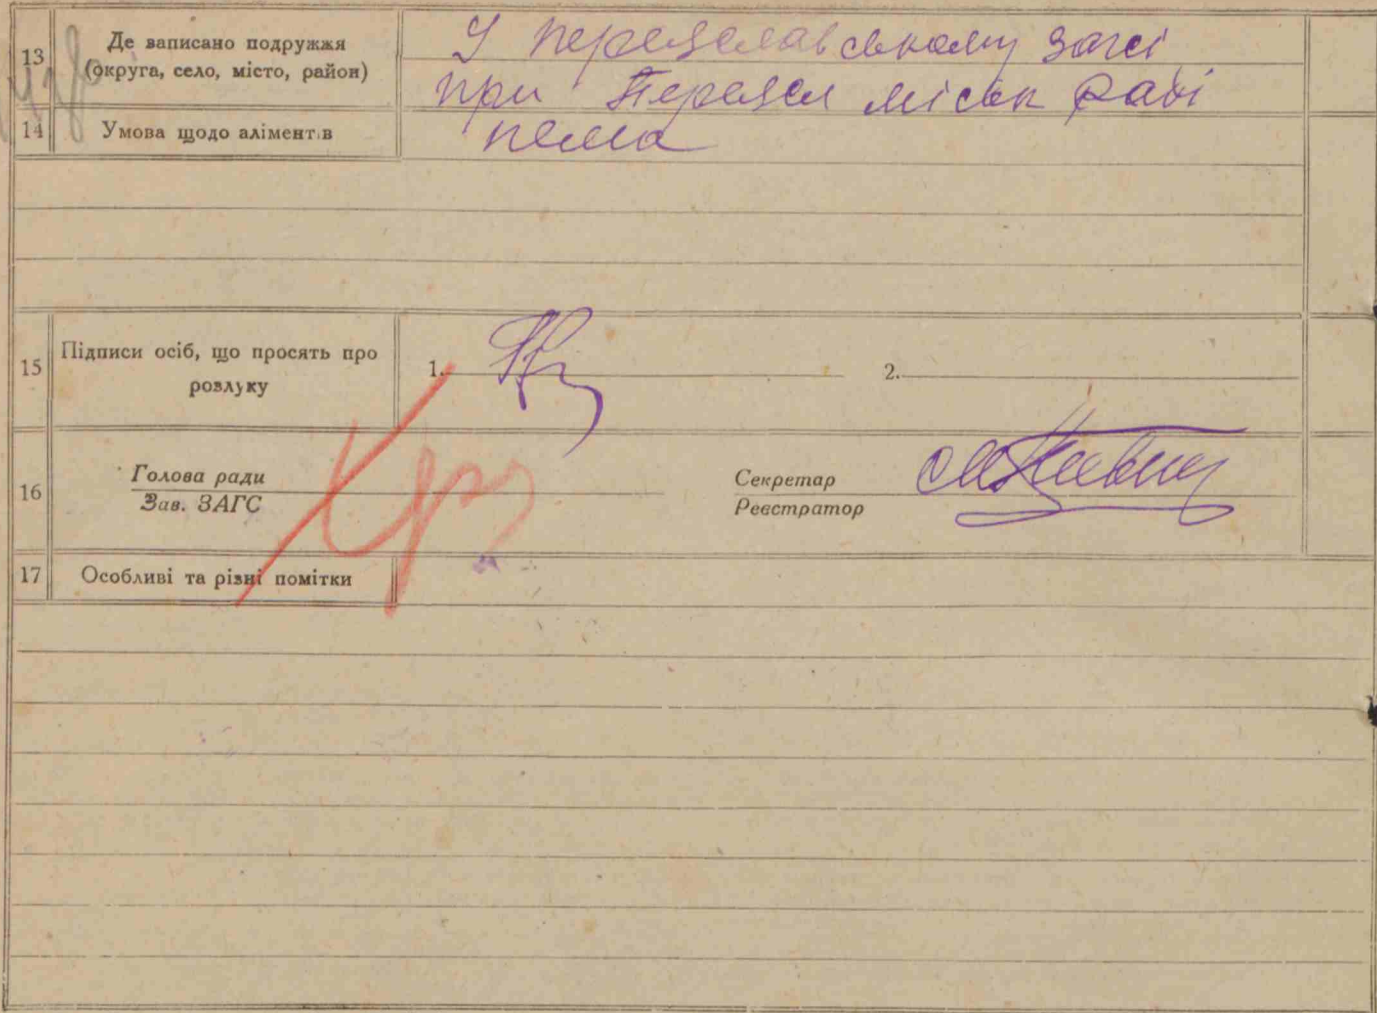 13 Де записано подружжя
(округа, село, місто, район)
У переяславському загсі
при Переясл міськ раді
14 Умова щодо аліментів
нема
15 Підписи осіб, що просять про
розлуку
1. 2.
16 Голова ради
Зав. ЗАГС
Секретар
Реєстратор
17 Особливі та різні помітки